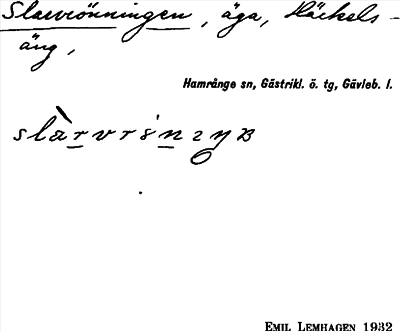 Slarvrönningen, äga, Häckels-
äng,
Hamrånge sn, Gästrikl. ö. tg, Gävleb. l.
EMIL LEMHAGEN 1932